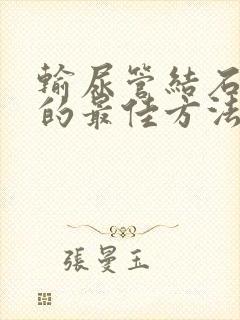 輸尿管結石
的最佳方法
張曼玉